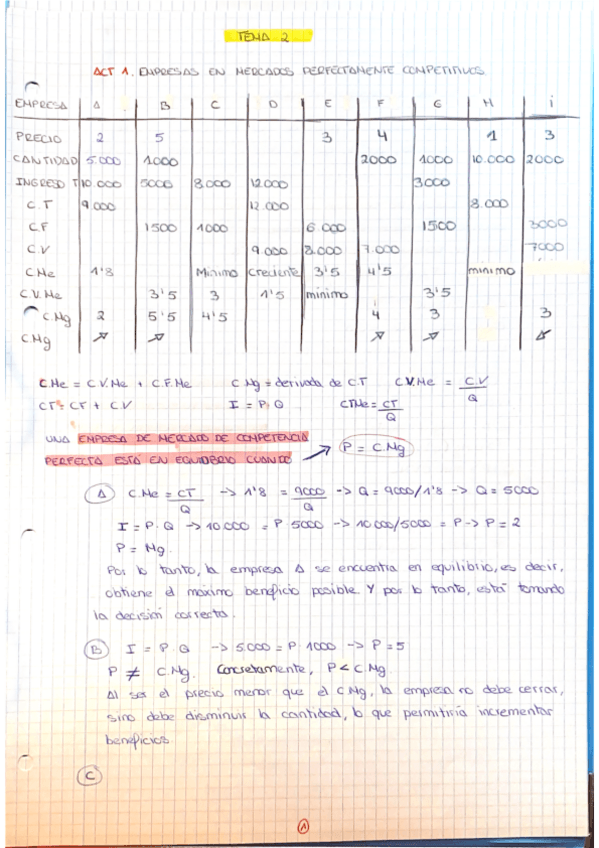 TEMA 2
ACT 1. EMPRESAS EN MERCADOS PERFECTAMENTE COMPETITIVOS.
EMPRESA A B C D E F G H i
PRECIO 2 5 3 4 1 3
CANTIDAD 5.000 1000 2000 1000 10.000 2000
INGRESO T 10.000 5000 8.000 12.000 3000
C.T 9.000 12.000 8.000
C.F 1500 1000 6.000 1500 3000
C.V 9.000 8.000 7.000 7000
C.Me 1'8 Mínimo creciente 3'5 4'5 mínimo
C.V.Me 3'5 3 1'5 mínimo 3'5
C.Mg 2 5'5 4'5 4 3 3
C.Mg ↗ ↗ ↗ ↗
C.Me = C.V.Me + C.F.Me C.Mg = derivada de C.T C.V.Me = C.V/Q
CT = CF + C.V I = P.Q CTMe = CT/Q
UNA EMPRESA DE MERCADO DE COMPETENCIA
PERFECTA ESTÁ EN EQUILIBRIO CUANDO → P = C.Mg
A C.Me = CT/Q → 1'8 = 9000/Q → Q = 9000/1'8 → Q = 5000
I = P.Q → 10.000 = P.5000 → 10.000/5000 = P → P = 2
P = Mg.
Por lo tanto, la empresa A se encuentra en equilibrio, es decir,
obtiene el máximo beneficio posible. Y por lo tanto, está tomando
la decisión correcta.
B I = P.Q → 5.000 = P.1000 → P = 5
P ≠ C.Mg. Concretamente, P < C.Mg.
Al ser el precio menor que el C.Mg, la empresa no debe cerrar,
sino debe disminuir la cantidad, lo que permitiría incrementar
beneficios.
C
1